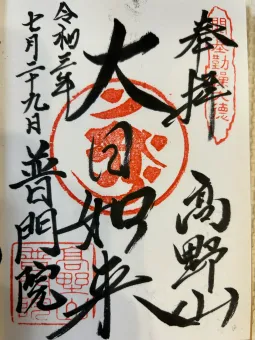 奉拝
高野山
大日如来
令和三年
七月二十九日
普門院